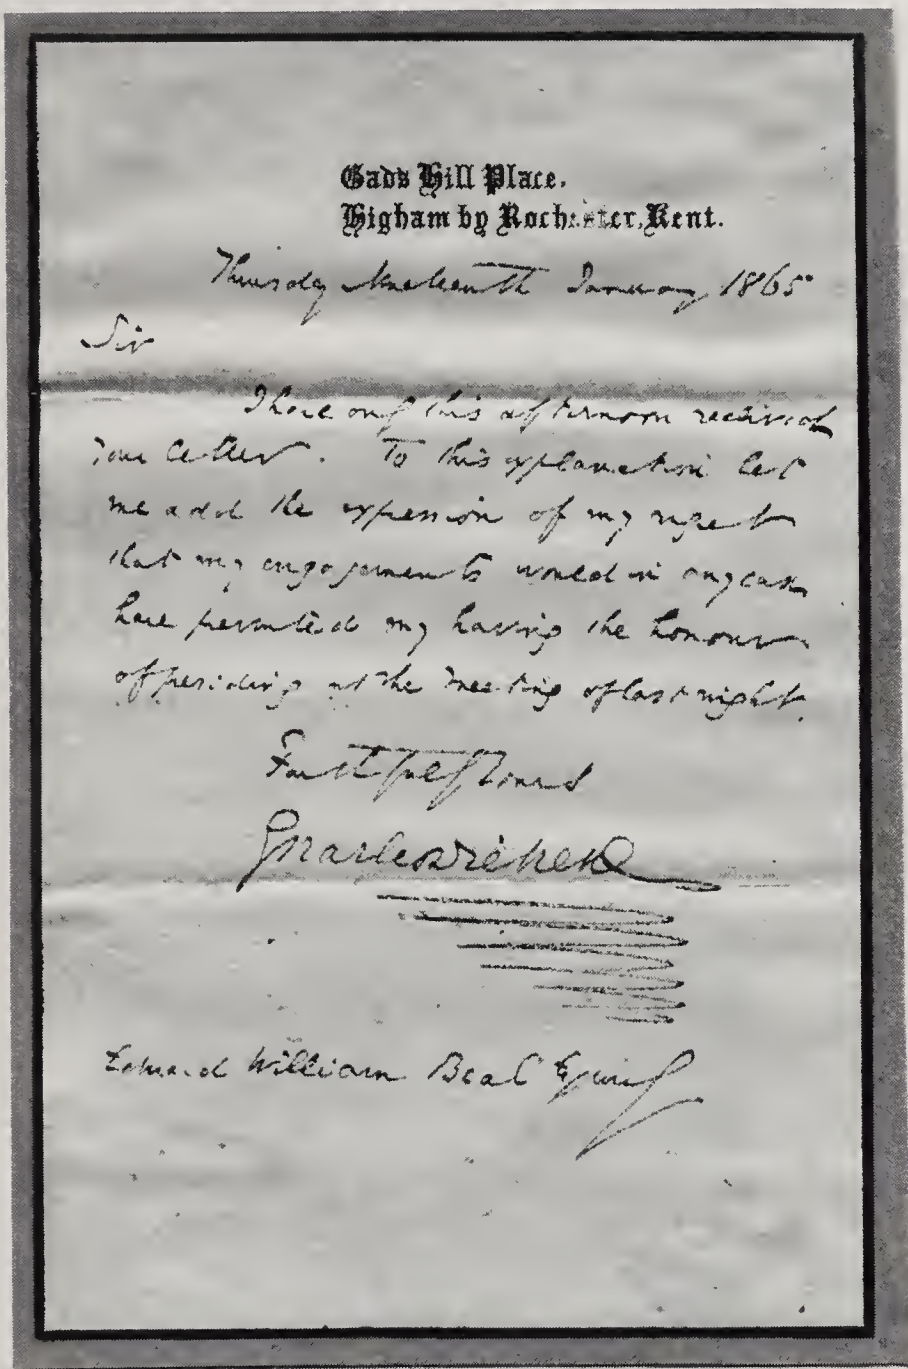 Gads Hill Place,
Higham by Rochester, Kent.
Thursday Nineteenth January 1865
Sir
I have only this afternoon received
your letter. To this explanation let
me add the expression of my regret
that my engagements would in any case
have permitted my having the honour
of presiding at the meeting of last night.
Faithfully Yours
Charles Dickens
Edward William Beal Esquire